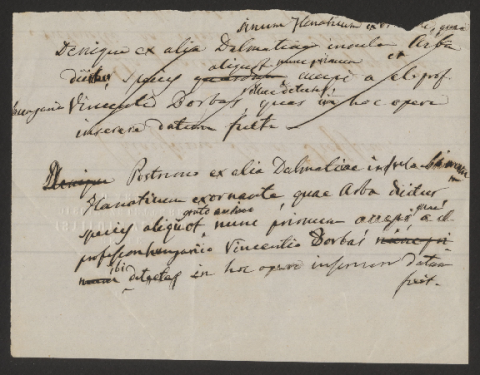 sinum Flanaticum exornante, quae
Denique ex alia Dalmatiae insula Arba
dicitur, species quasdam aliquot nunc primum accepi a cl. prof.
hungarico Vincentio Borbás ibi detectas, quas in hoc opere
inserere datum fuit.
Denique Postremo ex alia Dalmatiae insula Sinum
Flanaticum exornante, quae Arba dicitur
species aliquot, nunc primum grato animo accepi, a cl.
professore hungarico Vincentio Borbás
ibi detectas in hoc opere inserere datum
fuit.